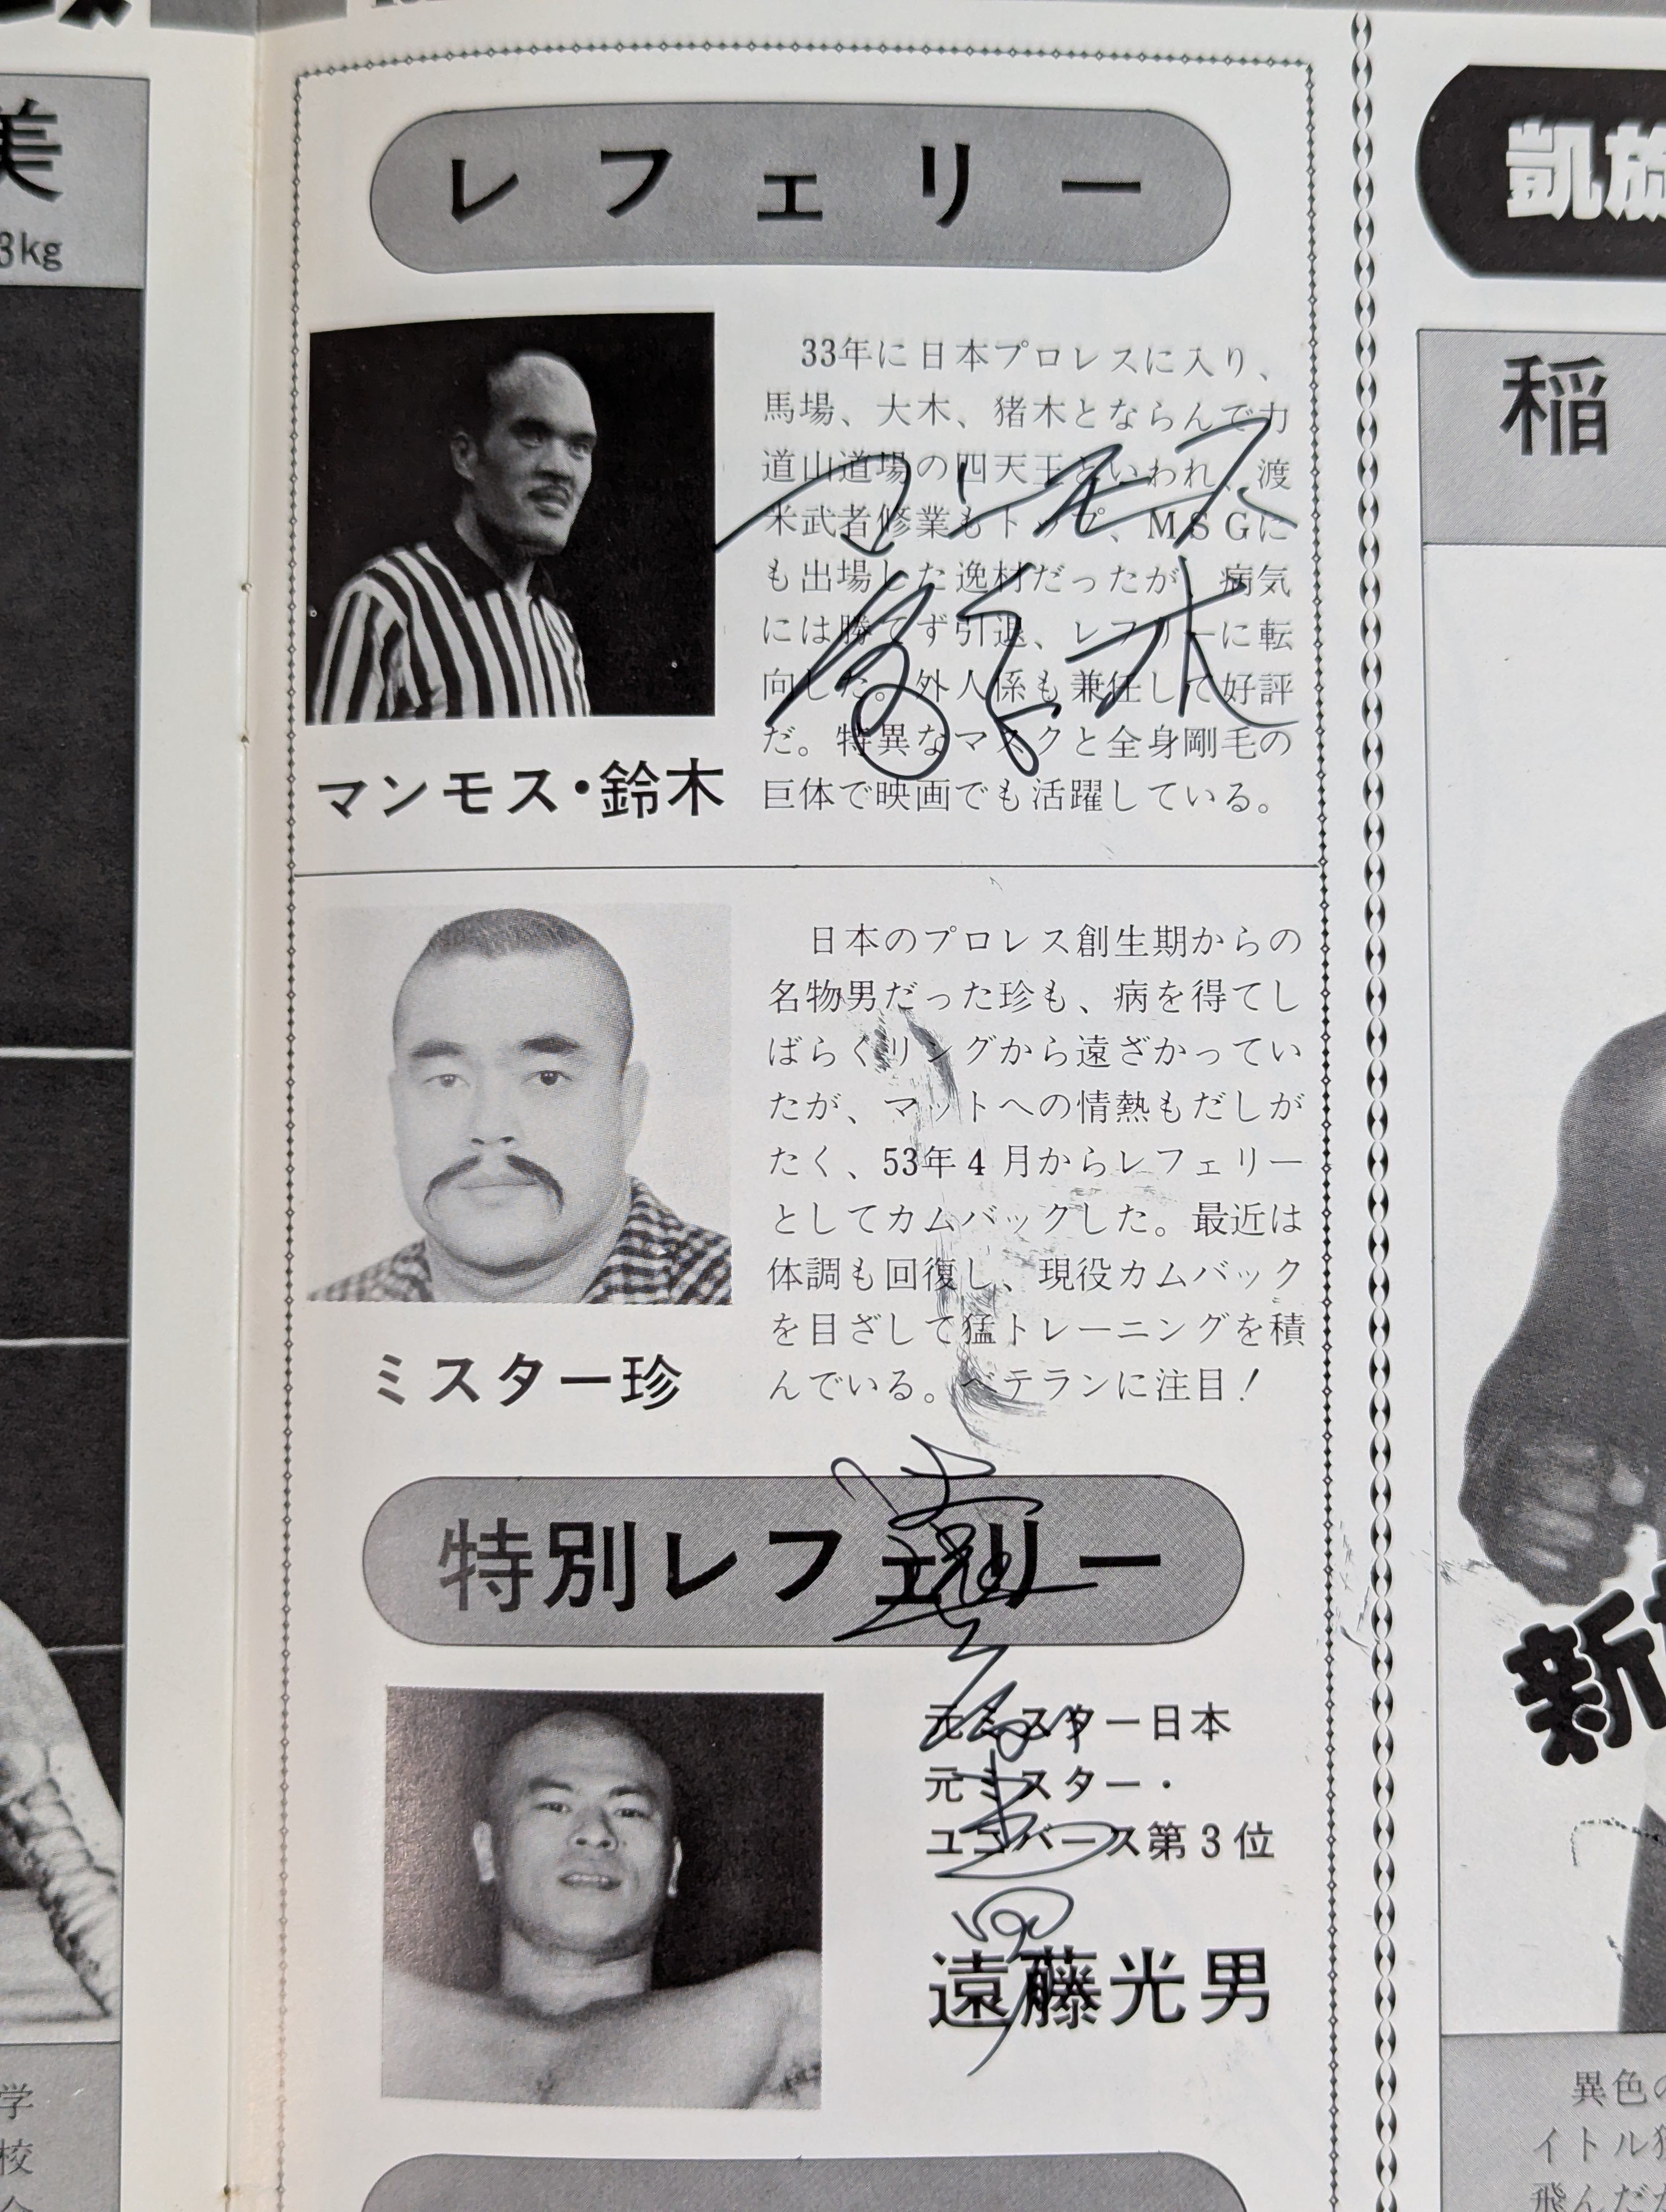 美
3kg
レフェリー
33年に日本プロレスに入り、
馬場、大木、猪木とならんで力
道山道場の四天王といわれ、渡
米武者修業もトップ、MSGに
も出場した逸材だったが、病気
には勝てず引退、レフリーに転
向した。外人係も兼任して好評
だ。特異なマスクと全身剛毛の
巨体で映画でも活躍している。
マンモス・鈴木
マンモス
鈴木
日本のプロレス創生期からの
名物男だった珍も、病を得てし
ばらくリングから遠ざかってい
たが、マットへの情熱もだしが
たく、53年4月からレフェリー
としてカムバックした。最近は
体調も回復し、現役カムバック
を目ざして猛トレーニングを積
んでいる。ベテランに注目！
ミスター珍
特別レフェリー
元ミスター日本
元ミスター・
ユニバース第3位
遠藤光男
凱旋
稲
新
学
校
異色の
イトル
飛んだ